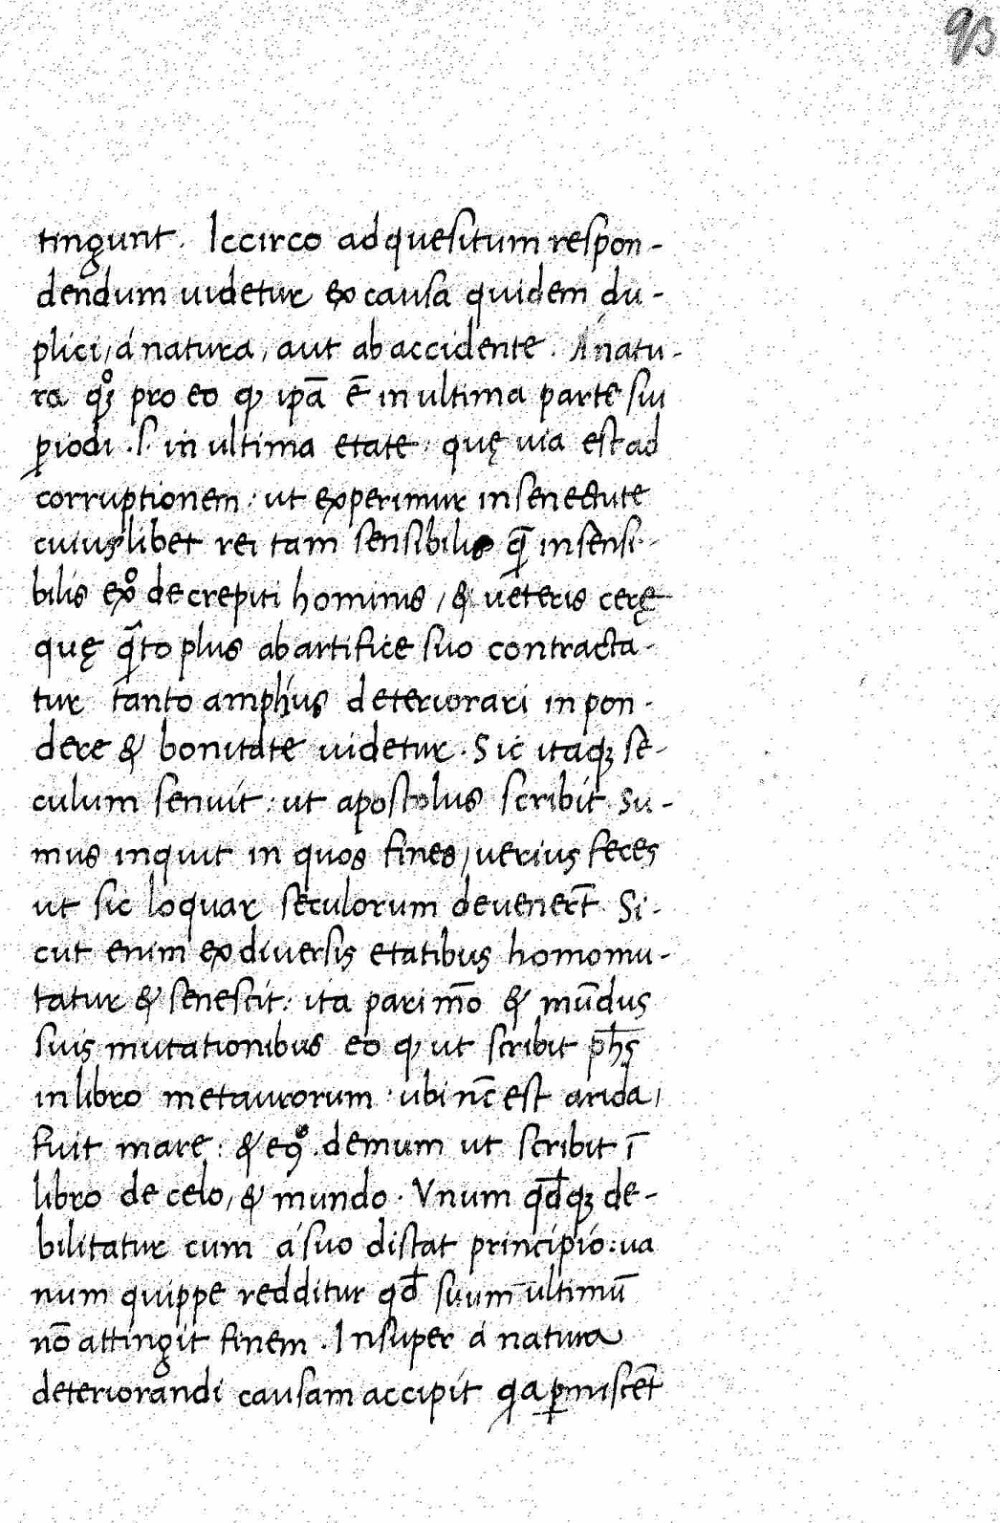 93
tingunt. Iccirco ad quesitum respon-
dendum uidetur ex causa quidem du-
plici, á natura, aut ab accidente. Á natu-
ra pro eo ꝙ ipā ē in ultima parte sui
ꝑiodi .s. in ultima etate: quę uia est ad
corruptionem: ut experimur in senectute
cuiuslibet rei tam sensibilis q̄ insensi-
bilis decrepiti hominis, & ueteris cerę
quę q̄to plus ab artifice suo contracta-
tur tanto amplius deteriorari in pon-
dere & bonitate uidetur. Sic itaqꝫ se-
culum senuit: ut apostolus scribit. Su-
mus inquit in quos fines, uerius feces
ut sic loquar seculorum deuener̄t. Si-
cut enim ex diuersis etatibus homo mu-
tatur & senescit: ita pari mō & mūdus
suis mutationibus eo ꝙ ut scribit ph̄s
in libro metaurorum: ubi nc̄ est arida,
fuit mare: & eº9. demum ut scribit ī
libro de celo, & mundo. Vnum qd̄qꝫ de-
bilitatur cum á suo distat principio: ua
num quippe redditur qd̄ suum ultimū
nō attingit finem. Insuper á natura
deteriorandi causam accipit qa ꝑmiscēt